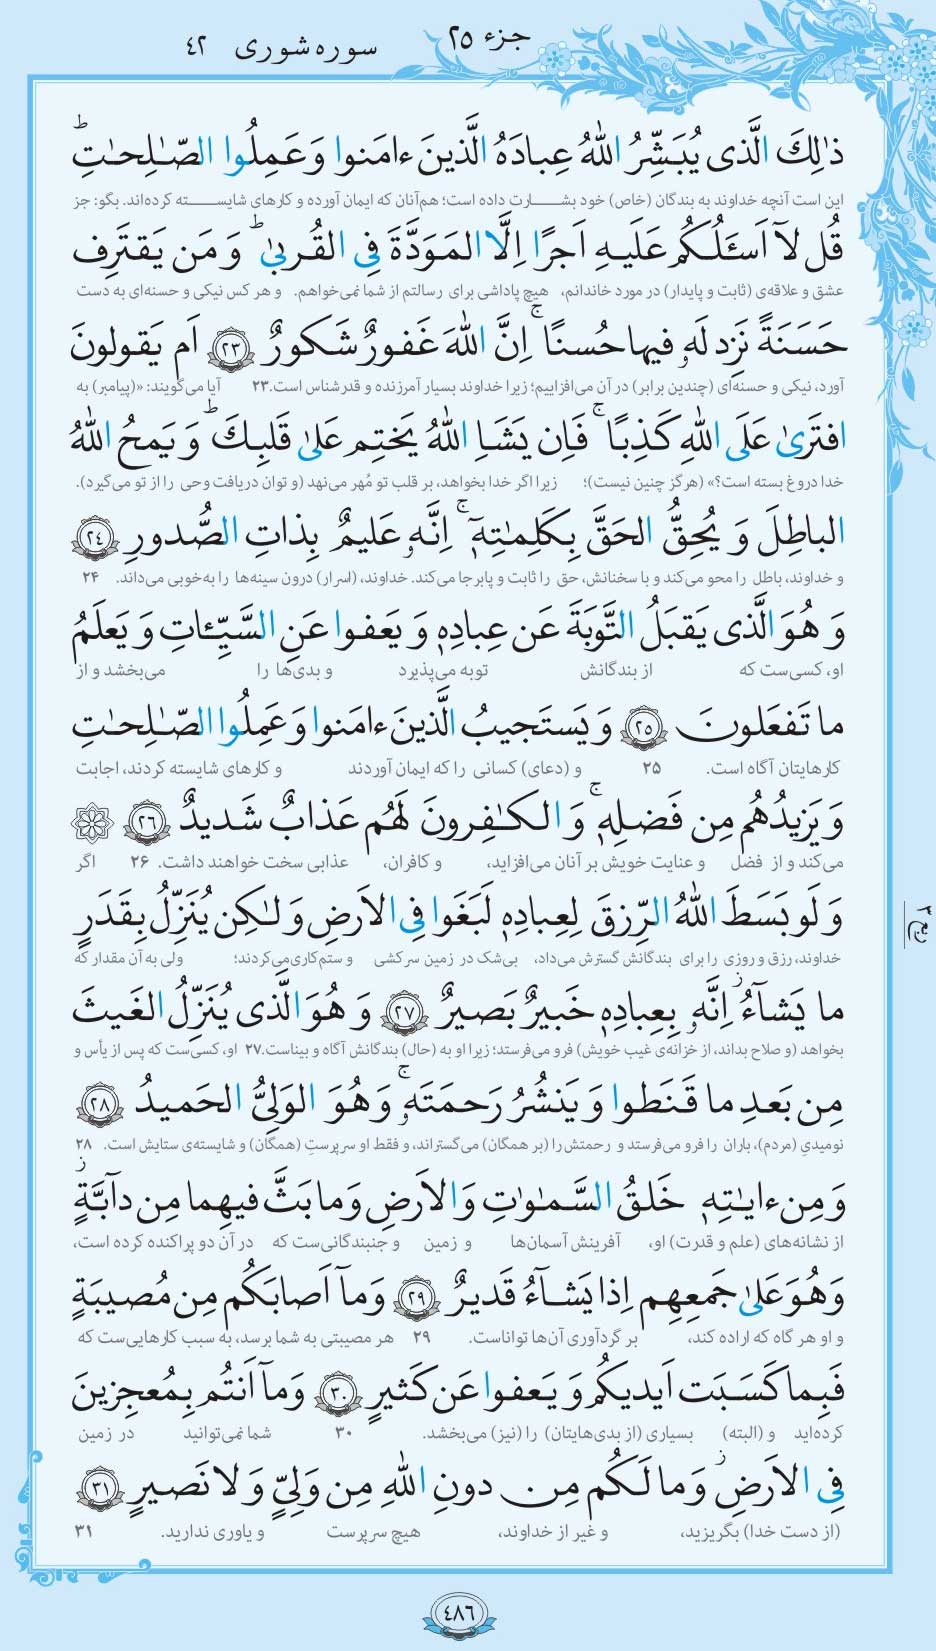 جزء ٢٥
سوره شوری ٤٢
ذٰلِكَ الَّذی یُبَشِّرُ اللّٰهُ عِبادَهُ الَّذینَ ءامَنوا وَ عَمِلُوا الصّـٰلِحٰتِ ۗ
این است آنچه خداوند به بندگان (خاص) خود بشـــارت داده است؛ هم‌آنان که ایمان آورده و کارهای شایســـته کرده‌اند. بگو: جز
قُل لآ اَسـَٔلُكُم عَلَیهِ اَجرًا اِلَّا المَوَدَّةَ فِی القُربیٰ ۗ وَ مَن یَقتَرِف
عشق و علاقه‌ی (ثابت و پایدار) در مورد خاندانم، هیچ پاداشی برای رسالتم از شما نمی‌خواهم. و هر کس نیکی و حسنه‌ای به دست
حَسَنَةً نَزِد لَهٗ فیها حُسنًا ۚ اِنَّ اللّٰهَ غَفورٌ شَكورٌ ٢٣ اَم یَقولونَ
آورد، نیکی و حسنه‌ای (چندین برابر) در آن می‌افزاییم؛ زیرا خداوند بسیار آمرزنده و قدرشناس است. ۲۳ آیا می‌گویند: «(پیامبر) به
افتَریٰ عَلَی اللّٰهِ كَذِبًا ۚ فَاِن یَشَاِ اللّٰهُ یَختِم عَلیٰ قَلبِكَ ۗ وَ یَمحُ اللّٰهُ
خدا دروغ بسته است؟» (هرگز چنین نیست)؛ زیرا اگر خدا بخواهد، بر قلب تو مُهر می‌نهد (و توان دریافت وحی را از تو می‌گیرد).
الباطِلَ وَ یُحِقُّ الحَقَّ بِكَلِمٰتِهٖٓ ۚ اِنَّهٗ عَلیمٌ بِذاتِ الصُّدورِ ٢٤
و خداوند، باطل را محو می‌کند و با سخنانش، حق را ثابت و پابرجا می‌کند. خداوند، (اسرار) درون سینه‌ها را به‌خوبی می‌داند. ۲۴
وَ هُوَ الَّذی یَقبَلُ التَّوبَةَ عَن عِبادِهٖ وَ یَعفوا عَنِ السَّیِّـٔاتِ وَ یَعلَمُ
او، کسی‌ست که از بندگانش توبه می‌پذیرد و بدی‌ها را می‌بخشد و از
ما تَفعَلونَ ٢٥ وَ یَستَجیبُ الَّذینَ ءامَنوا وَ عَمِلُوا الصّـٰلِحٰتِ
کارهایتان آگاه است. ۲۵ و (دعای) کسانی را که ایمان آوردند و کارهای شایسته کردند، اجابت
وَ یَزیدُهُم مِن فَضلِهٖ ۚ وَ الكـٰفِرونَ لَهُم عَذابٌ شَدیدٌ ٢٦
می‌کند و از فضل و عنایت خویش بر آنان می‌افزاید، و کافران، عذابی سخت خواهند داشت. ۲۶ اگر
وَ لَو بَسَطَ اللّٰهُ الرِّزقَ لِعِبادِهٖ لَبَغَوا فِی الاَرضِ وَ لـٰكِن یُنَزِّلُ بِقَدَرٍ
خداوند، رزق و روزی را برای بندگانش گسترش می‌داد، بی‌شک در زمین سرکشی و ستم‌کاری می‌کردند؛ ولی به آن مقدار که
ما یَشآءُ ۚ اِنَّهٗ بِعِبادِهٖ خَبیرٌ بَصیرٌ ٢٧ وَ هُوَ الَّذی یُنَزِّلُ الغَیثَ
بخواهد (و صلاح بداند، از خزانه‌ی غیب خویش) فرو می‌فرستد؛ زیرا او به (حال) بندگانش آگاه و بیناست. ۲۷ او، کسی‌ست که پس از یأس و
مِن بَعدِ ما قَنَطوا وَ یَنشُرُ رَحمَتَهٗ ۚ وَ هُوَ الوَلِیُّ الحَمیدُ ٢٨
نومیدیِ (مردم)، باران را فرو می‌فرستد و رحمتش را (بر همگان) می‌گستراند، و فقط او سرپرستِ (همگان) و شایسته‌ی ستایش است. ۲۸
وَ مِن ءایٰتِهٖ خَلقُ السَّمٰوٰتِ وَ الاَرضِ وَ ما بَثَّ فیهِما مِن دآبَّةٍ ۚ
از نشانه‌های (علم و قدرت) او، آفرینش آسمان‌ها و زمین و جنبندگانی‌ست که در آن دو پراکنده کرده است،
وَ هُوَ عَلیٰ جَمعِهِم اِذا یَشآءُ قَدیرٌ ٢٩ وَ مآ اَصابَكُم مِن مُصیبَةٍ
و او هر گاه که اراده کند، بر گردآوری آن‌ها تواناست. ۲۹ هر مصیبتی به شما برسد، به سبب کارهایی‌ست که
فَبِما كَسَبَت اَیدیكُم وَ یَعفوا عَن كَثیرٍ ٣٠ وَ مآ اَنتُم بِمُعجِزینَ
کرده‌اید و (البته) بسیاری (از بدی‌هایتان) را (نیز) می‌بخشد. ۳۰ شما نمی‌توانید در زمین
فِی الاَرضِ ۚ وَ ما لَكُم مِن دونِ اللّٰهِ مِن وَلِیٍّ وَ لا نَصیرٍ ٣١
(از دست خدا) بگریزید، و غیر از خداوند، هیچ سرپرست و یاوری ندارید. ۳۱
ربع ٣
٤٨٦